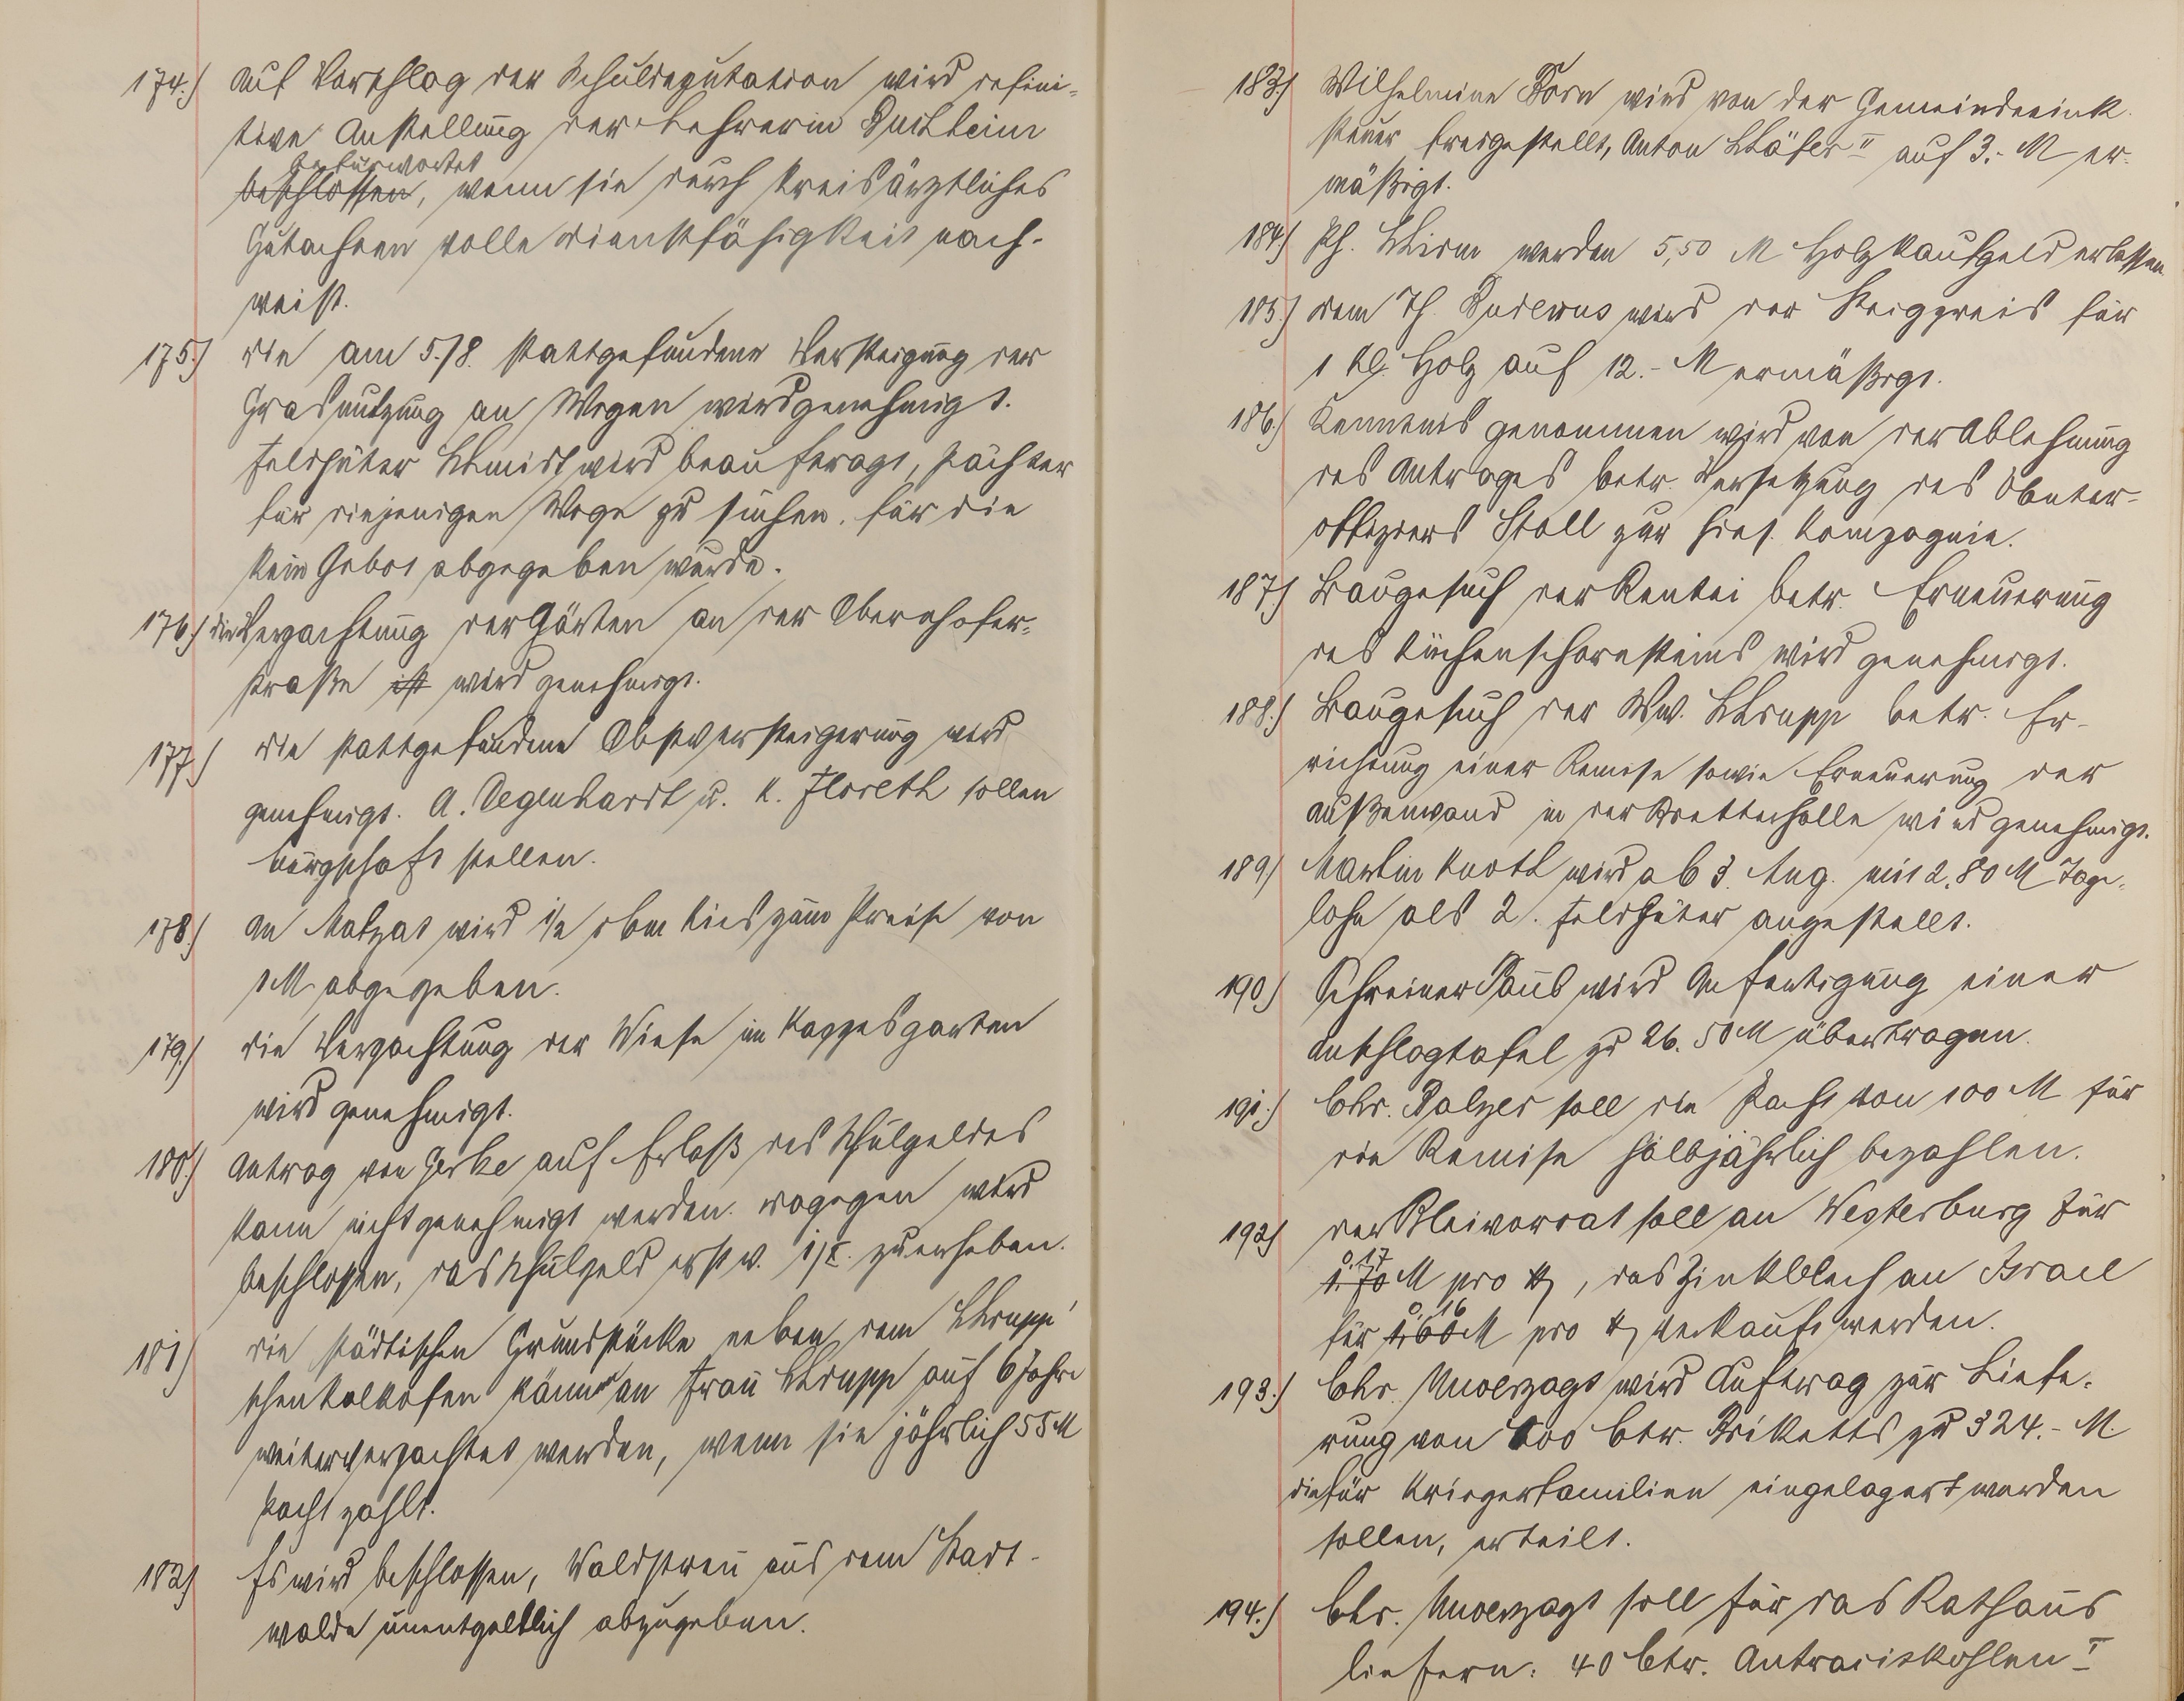 174.) Auf Vorschlag der Schuldeputation wird defini-
tive Anstellung der Lehrerin Quitteim
befürwortet
beschlossen, wenn sie durch kreisärztliches
Gutachten volle Dienstfähigkeit nach-
weist.
175.) Die am 5./8. stattgefundene Versteigung der
Grasnutzung an Wegen wird genehmigt.
Feldhüter Schmidt wird beauftragt, Pächter
für diejenigen Wege zu suchen, für die
kein Gebot abgegeben wurde.
176.) Die Verpachtung der Gärten an der Obernhofer-
straße ist wird genehmigt.
177.) Die stattgefundene Obstversteigerung wird
genehmigt. A. Degenhardt u. K. Floreth sollen
bürgschaft stellen.
178.) An Matzat wird 1/2 cbm Kies zum Preise von
1 M abgegeben.
179.) Die Verpachtung der Wiese im Kappesgarten
wird genehmigt.
180.) Antrag von Gerke auf Erlaß des Schulgeldes
kann nicht genehmigt werden. Dagegen wird
beschlossen, das Schulgeld erst v. 1/X. zu erheben.
181) Die städtischen Grundstücke neben dem Schrupp'
schen Kalkofen können an Frau Schrupp auf 6 Jahre
weiterverpachtet werden, wenn sie jährlich 55 M
Pacht zahlt.
182) Es wird beschlossen, Waldstreu aus dem Stadt-
walde unentgeltlich abzugeben.
183) Wilhelmine Born wird von der Gemeindeeink.
steuer freigestellt, Anton Schäfer II auf 3.- M er-
mäßigt.
184) Ph. Schirm werden 5,50 M Holzkaufgeld erlassen.
185.) Dem Th. Buderus wird der Steigpreis für
1 Kl. Holz auf 12.- M ermäßigt.
186.) Kenntnis genommen wird von der Ablehnung
des Antrages betr. Versetzung des Unter-
offiziers Stoll zur hies. Kompagnie.
187.) Baugesuch der Rentei betr. Erneuerung
des Küchenschornsteins wird genehmigt.
188.) Baugesuch der Ww. Schrupp betr. Er-
richtung einer Remise sowie Erneuerung der
Außenwand in der Bretterhalle wird genehmigt.
189) Martin Knoth wird ab 3. Aug. mit 2,80 M Tage-
lohn als 2. Feldhüter angestellt.
190) Schreiner Paul wird Anfertigung einer
Anschlagtafel zu 26.50 M übertragen.
191.) Chr. Balzer soll die Pacht von 100 M für
die Remise halbjährlich bezahlen.
192) Der Bleivorrat soll an Westerburg für
0,17
1.70 M pro kg, das Zinkblech an Israel
0,16
für 1,60 M pro kg verkauft werden.
193.) Chr. Unverzagt wird Auftrag zur Liefe-
rung von 600 Ctr. Briketts zu 324.- M.
die für Kriegerfamilien eingelagert werden
sollen, erteilt.
194.) Chr. Unverzagt soll für das Rathaus
liefern: 40 Ctr. Antracitkohlen I